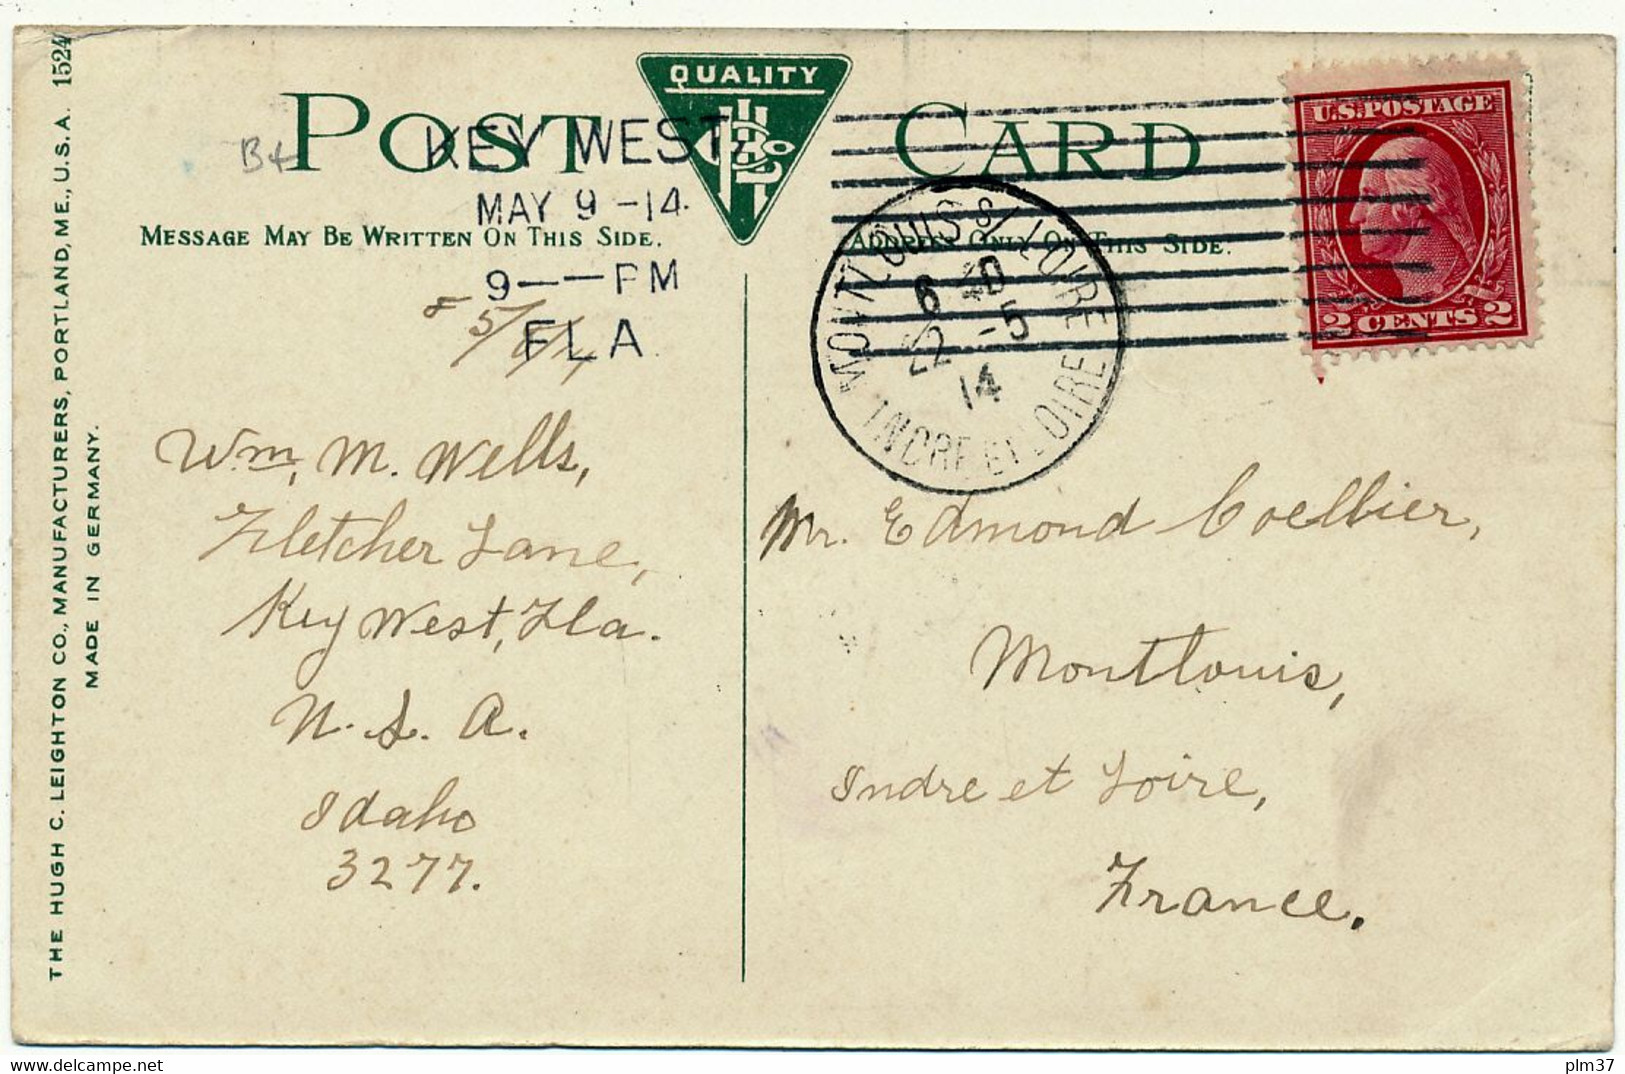 THE HUGH C. LEIGHTON CO., MANUFACTURERS, PORTLAND, ME., U.S.A. 1524
MADE IN GERMANY.
QUALITY
POST CARD
KEY WEST,
MAY 9 -14.
9 -- PM
FLA.
MESSAGE MAY BE WRITTEN ON THIS SIDE.
ADDRESS ONLY ON THIS SIDE.
U.S.POSTAGE
2 CENTS 2
MONTLOUIS S/ LOIRE
6 40
22 -5
14
INDRE ET LOIRE
Wm. M. Wells,
Fletcher Lane,
Key West, Fla.
U. S. A.
Idaho
3277.
Mr. Edmond Coellier,
Montlouis,
Indre et Loire,
France.
plm37